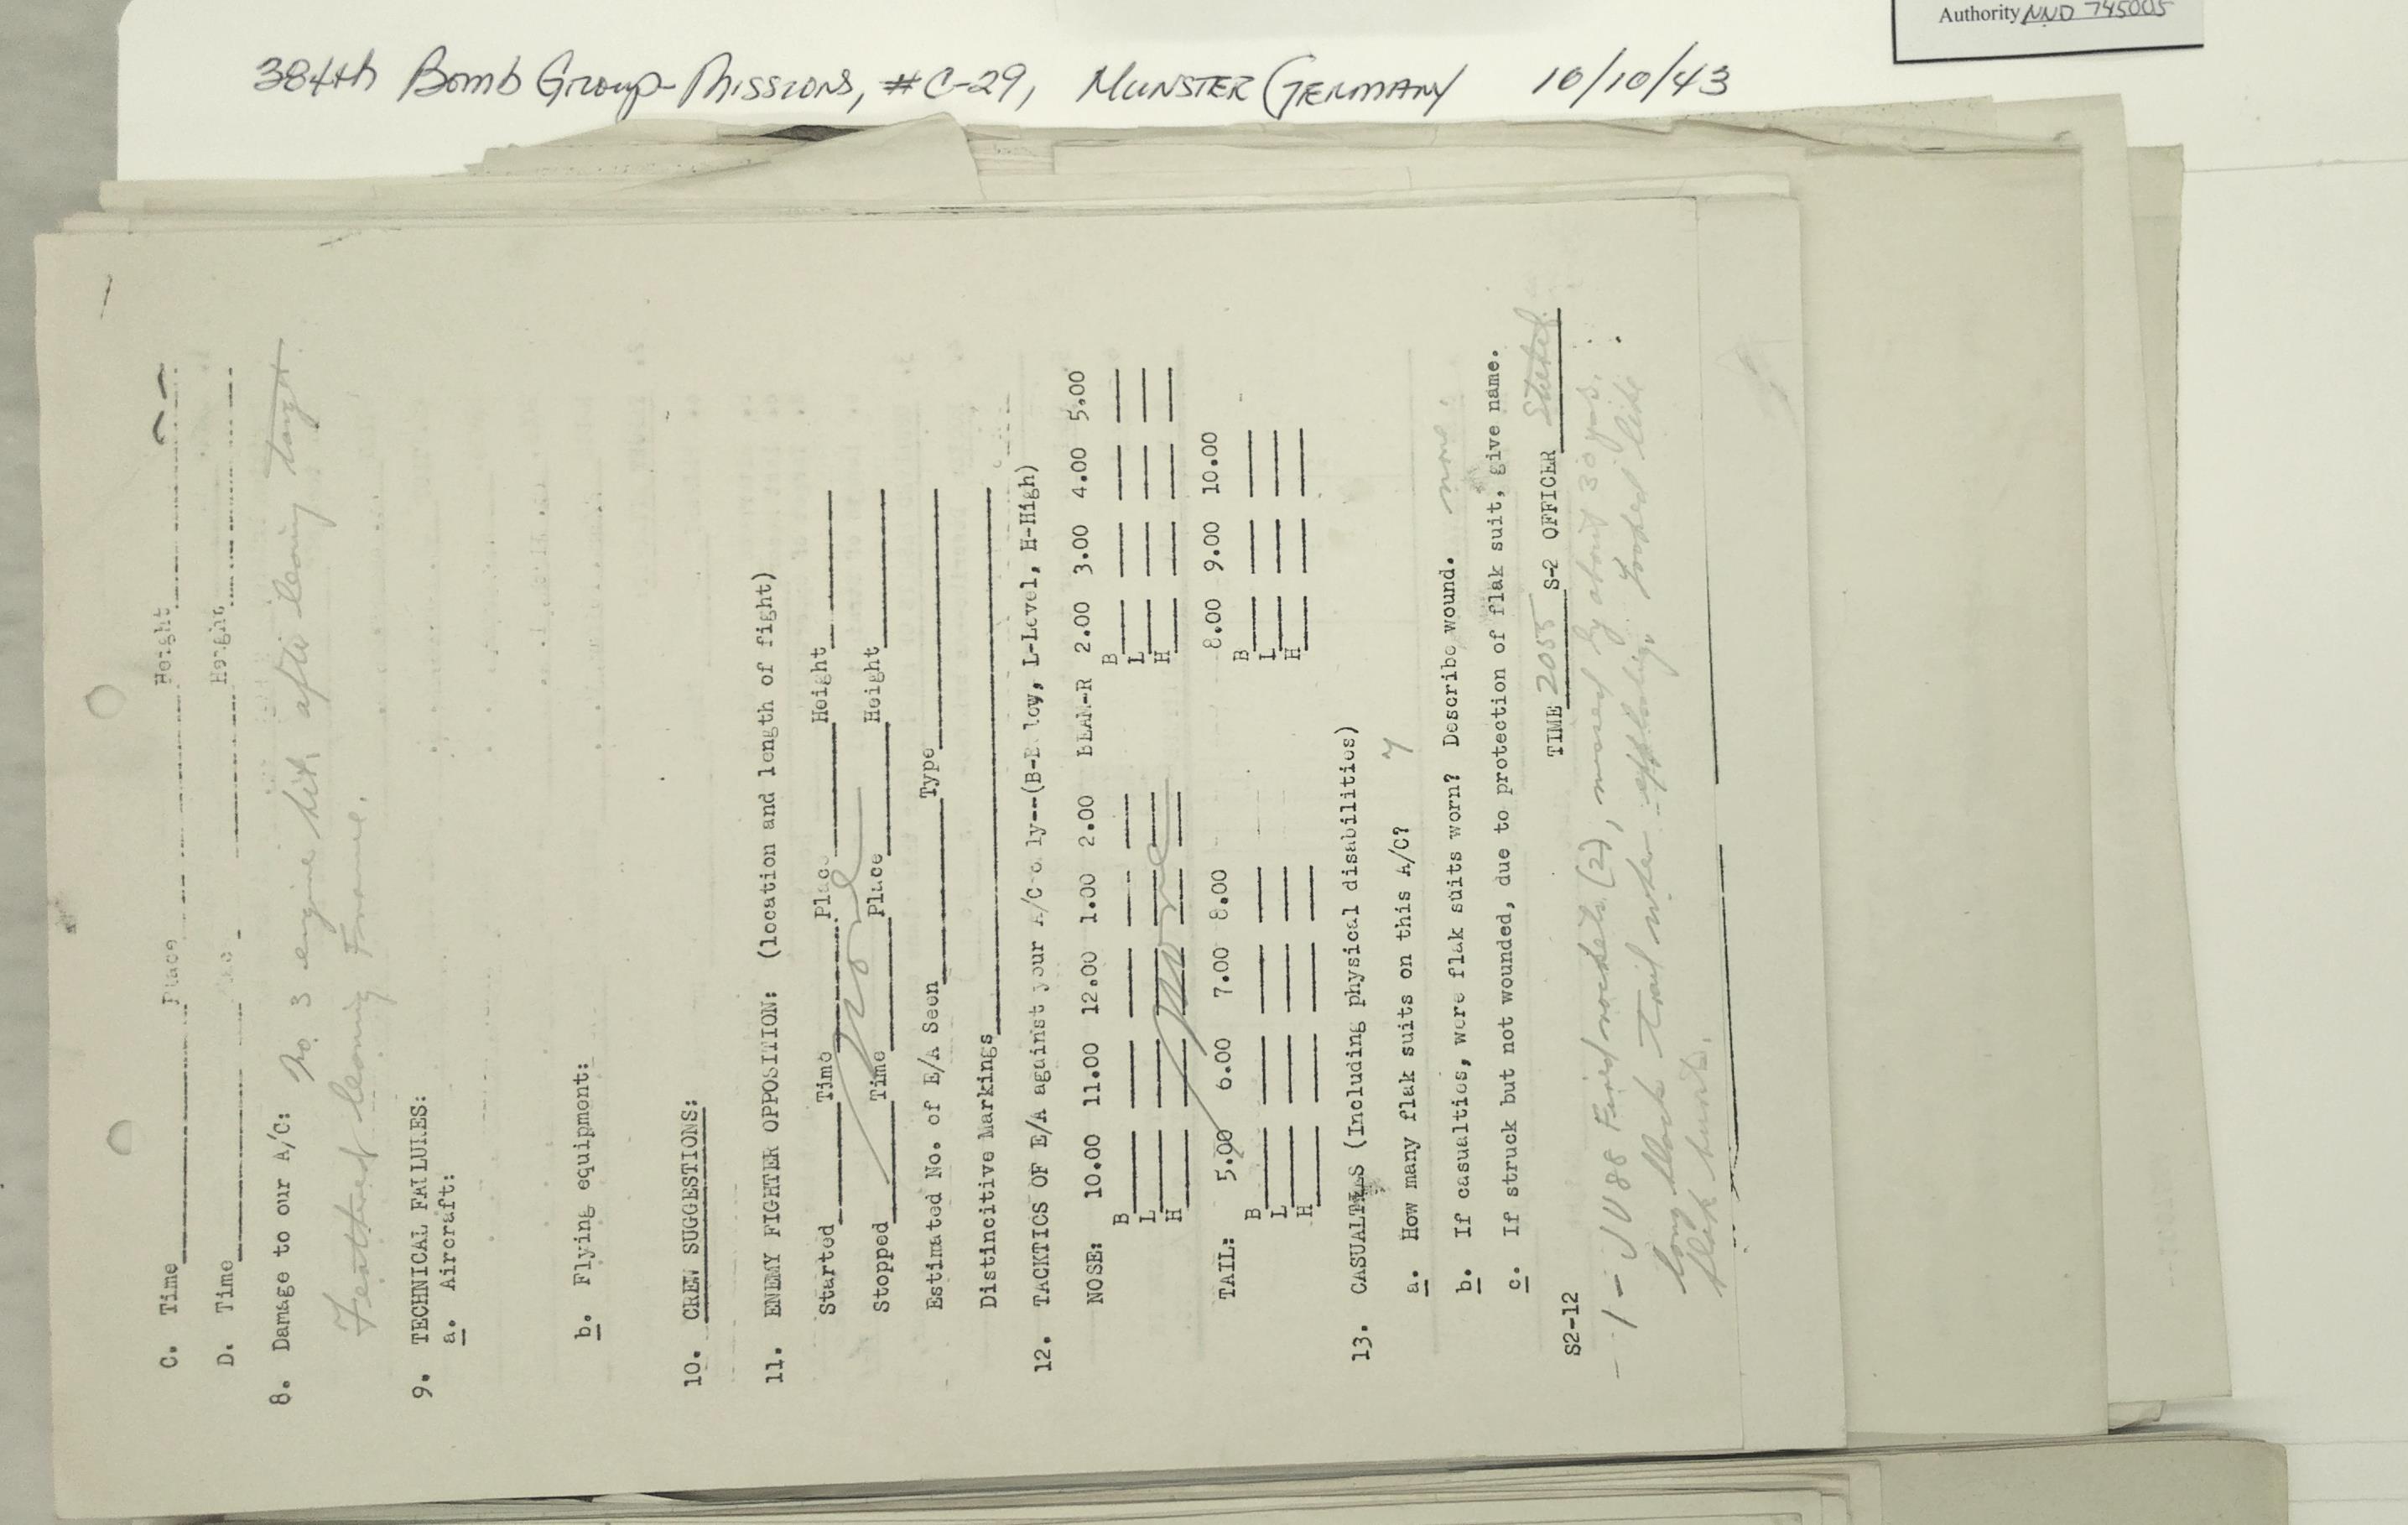 Authority NND 745005
384th Bomb Group-Missions, #C-29, MUNSTER GERMANY 10/10/43
C. Time Place Height
D. Time Height
8. Damage to our A/C: No. 3 engine hit after leaving target
Feathered leaving France.
9. TECHNICAL FAILURES:
a. Aircraft:
b. Flying equipment:
10. CREW SUGGESTIONS:
11. ENEMY FIGHTER OPPOSITION: (location and length of fight)
Started Time Place Height
None
Stopped Time Place Height
Estimated No. of E/A Seen Type
Distincitive Markings
12. TACKTICS OF E/A against your A/C o ly--(B-B low, L-Level, H-High)
NOSE: 10.00 11.00 12.00 1.00 2.00 BEAM-R 2.00 3.00 4.00 5.00
B B
L L
H H
None
TAIL: 5.00 6.00 7.00 8.00 8.00 9.00 10.00
B B
L L
H H
13. CASUALTIES (Including physical disabilities)
a. How many flak suits on this A/C? 7
b. If casualtios, were flak suits worn? Describe wound. none.
c. If struck but not wounded, due to protection of flak suit, give name.
TIME 2055 S-2 OFFICER
S2-12
- 1 - JU 88 Fired rockets (2), missed by about 30 yds.
long black trail when Looked like
flak bursts.